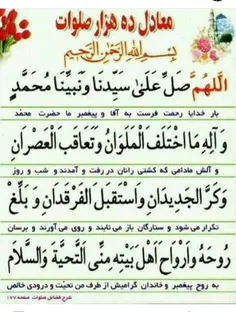 معادل ده هزار صلوات
بِسْمِ اللهِ الرَّحْمٰنِ الرَّحِيْمِ
اَللّهُمَّ صَلِّ عَلىٰ سَيِّدِنَا وَنَبِيِّنَا مُحَمَّدٍ
بار خدایا رحمت فرست به آقا و پیغمبر ما حضرت محمد
وَآلِهِ مَا اخْتَلَفَ الْمَلَوَانُ وَتَعَاقَبَ الْعَصْرَانِ
و آلش مادامی که گشتی رانان در رفت و آمدند و شب و روز
وَكَرَّ الْجَدِيدَانِ وَاسْتَقْبَلَ الْفَرْقَدَانِ وَ بَلِّغْ
تکرار می شود و ستارگان باز می تابند و روی می آورند و برسان
رُوحَهُ وَاَرْوَاحَ اَهْلِ بَيْتِهِ مِنِّى التَّحِيَّةَ وَالسَّلَامَ
به روح پیغمبر و خاندان گرامیش از طرف من تحیت و درودی خالص
شرح فضائل صلوات، صفحه ۱۷۷